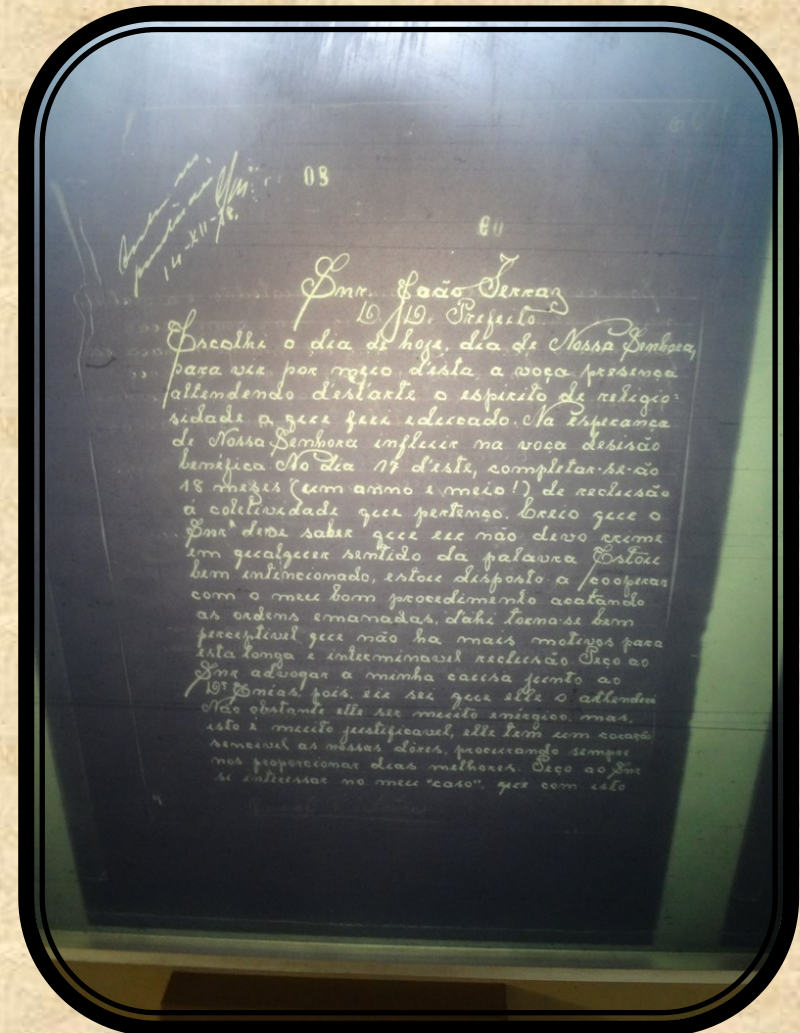 14-XII-38.
08
60
Snr. João Ferraz
D. D. Prefeito
Escolhi o dia de hoje, dia de Nossa Senhora,
para vir por meio d'ésta a voça presença
attendendo d'est'arte o espirito de religio=
sidade a que fui educado. Na esperança
de Nossa Senhora influir na voca desisão
benéfica No dia 17 d'este, completar-se-ão
18 mezes (um anno e meio!) de reclusão
á coletividade que pertenço. Creio que o
Snr. deve saber que eu não devo crime
em qualquer sentido da palavra Estou
bem intencionado, estou disposto a cooperar
com o meu bom procedimento acatando
as ordens emanadas, d'ahi torna-se bem
perceptivel que não ha mais motivos para
esta longa e interminavel reclusão Peço ao
Snr advogar a minha causa junto ao
Dr Enias, pois, eu sei que elle o attenderá
Não obstante elle ser muito enérgico, mas,
isto é muito justificavel, elle tem um coração
sencivel as nossas dôres, procurando sempre
nos proporcionar dias melhores. Peço ao Snr
se interessar no meu "caso", que com isto